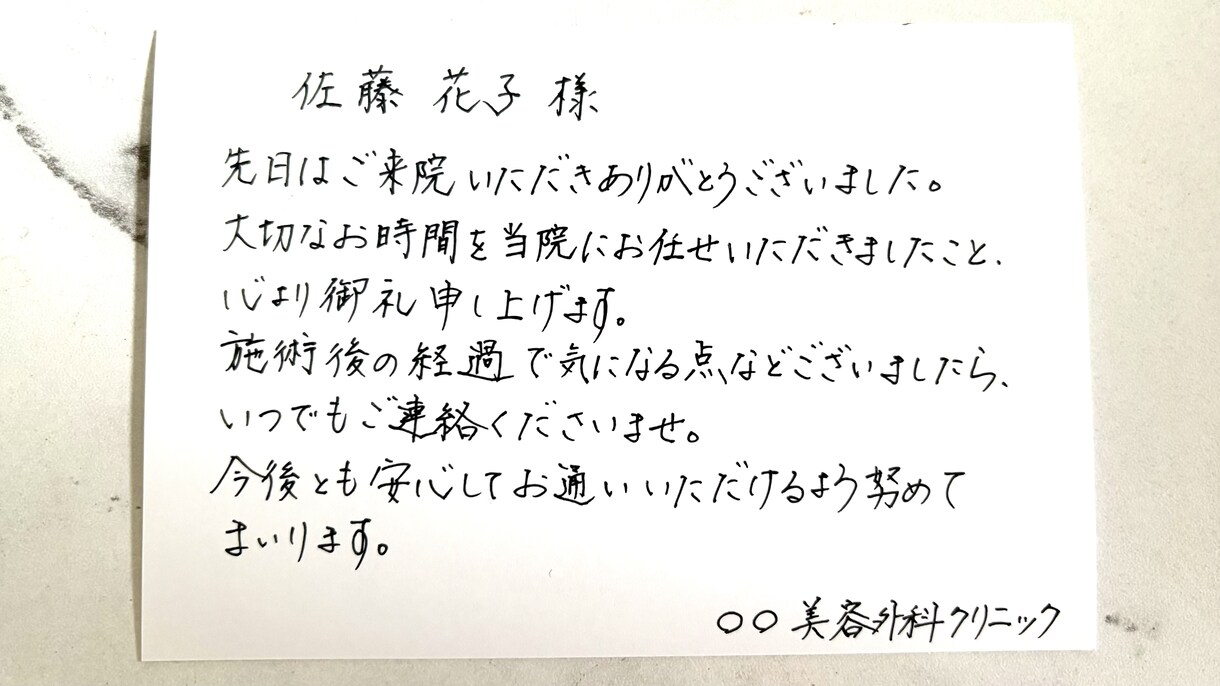 佐藤 花子 様
先日はご来院いただきありがとうございました。
大切なお時間を当院にお任せいただきましたこと、
心より御礼申し上げます。
施術後の経過で気になる点などございましたら、
いつでもご連絡くださいませ。
今後とも安心してお通いいただけるよう努めて
まいります。
○○美容外科クリニック